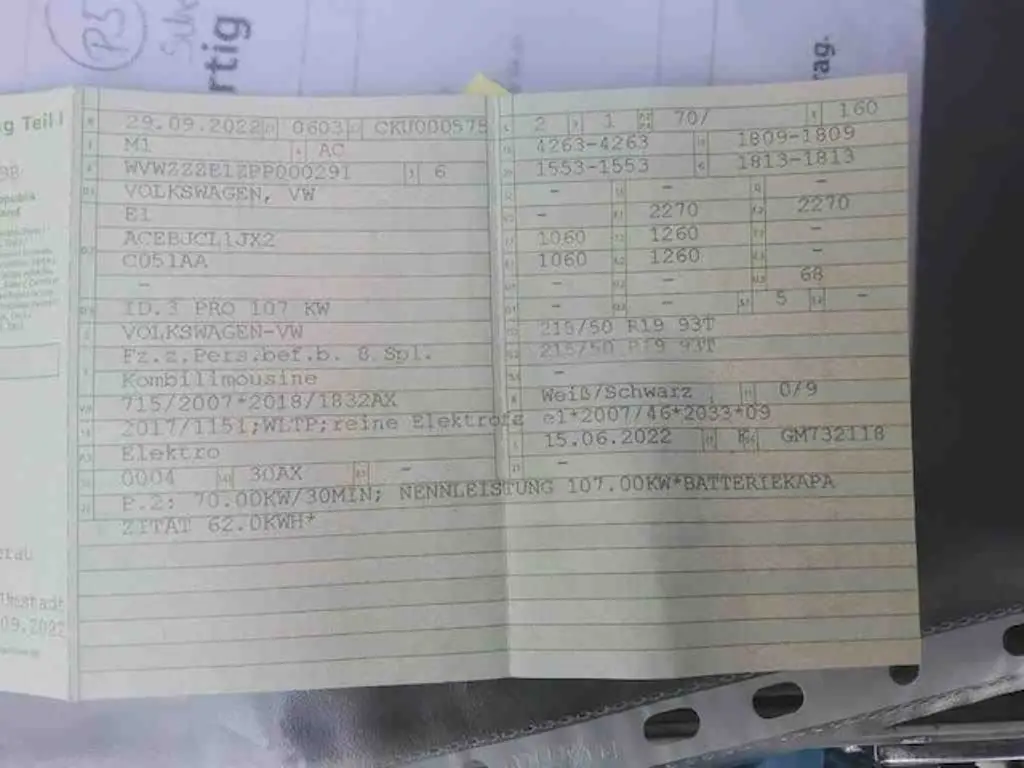 P5
rtig
rag.
g Teil I
29.09.2022 0603 CKU000575
M1 AC
WVWZZZE1ZPP000291 6
VOLKSWAGEN, VW
E1
ACEBJCL1JX2
C051AA
-
ID.3 PRO 107 KW
VOLKSWAGEN-VW
Fz.z.Pers.bef.b. 8 Spl.
Kombilimousine
715/2007*2018/1832AX
2017/1151;WLTP;reine Elektrofz
Elektro
0004 30AX -
P.2: 70.00KW/30MIN; NENNLEISTUNG 107.00KW*BATTERIEKAPA
ZITÄT 62.0KWH*
2 1 70/ 160
4263-4263 1809-1809
1553-1553 1813-1813
- - -
- 2270 2270
1060 1260 -
1060 1260 -
- - 68
- - 5 -
215/50 R19 93T
215/50 R19 93T
-
Weiß/Schwarz 0/9
e1*2007/46*2033*09
15.06.2022 K GM732118
-
09.2022